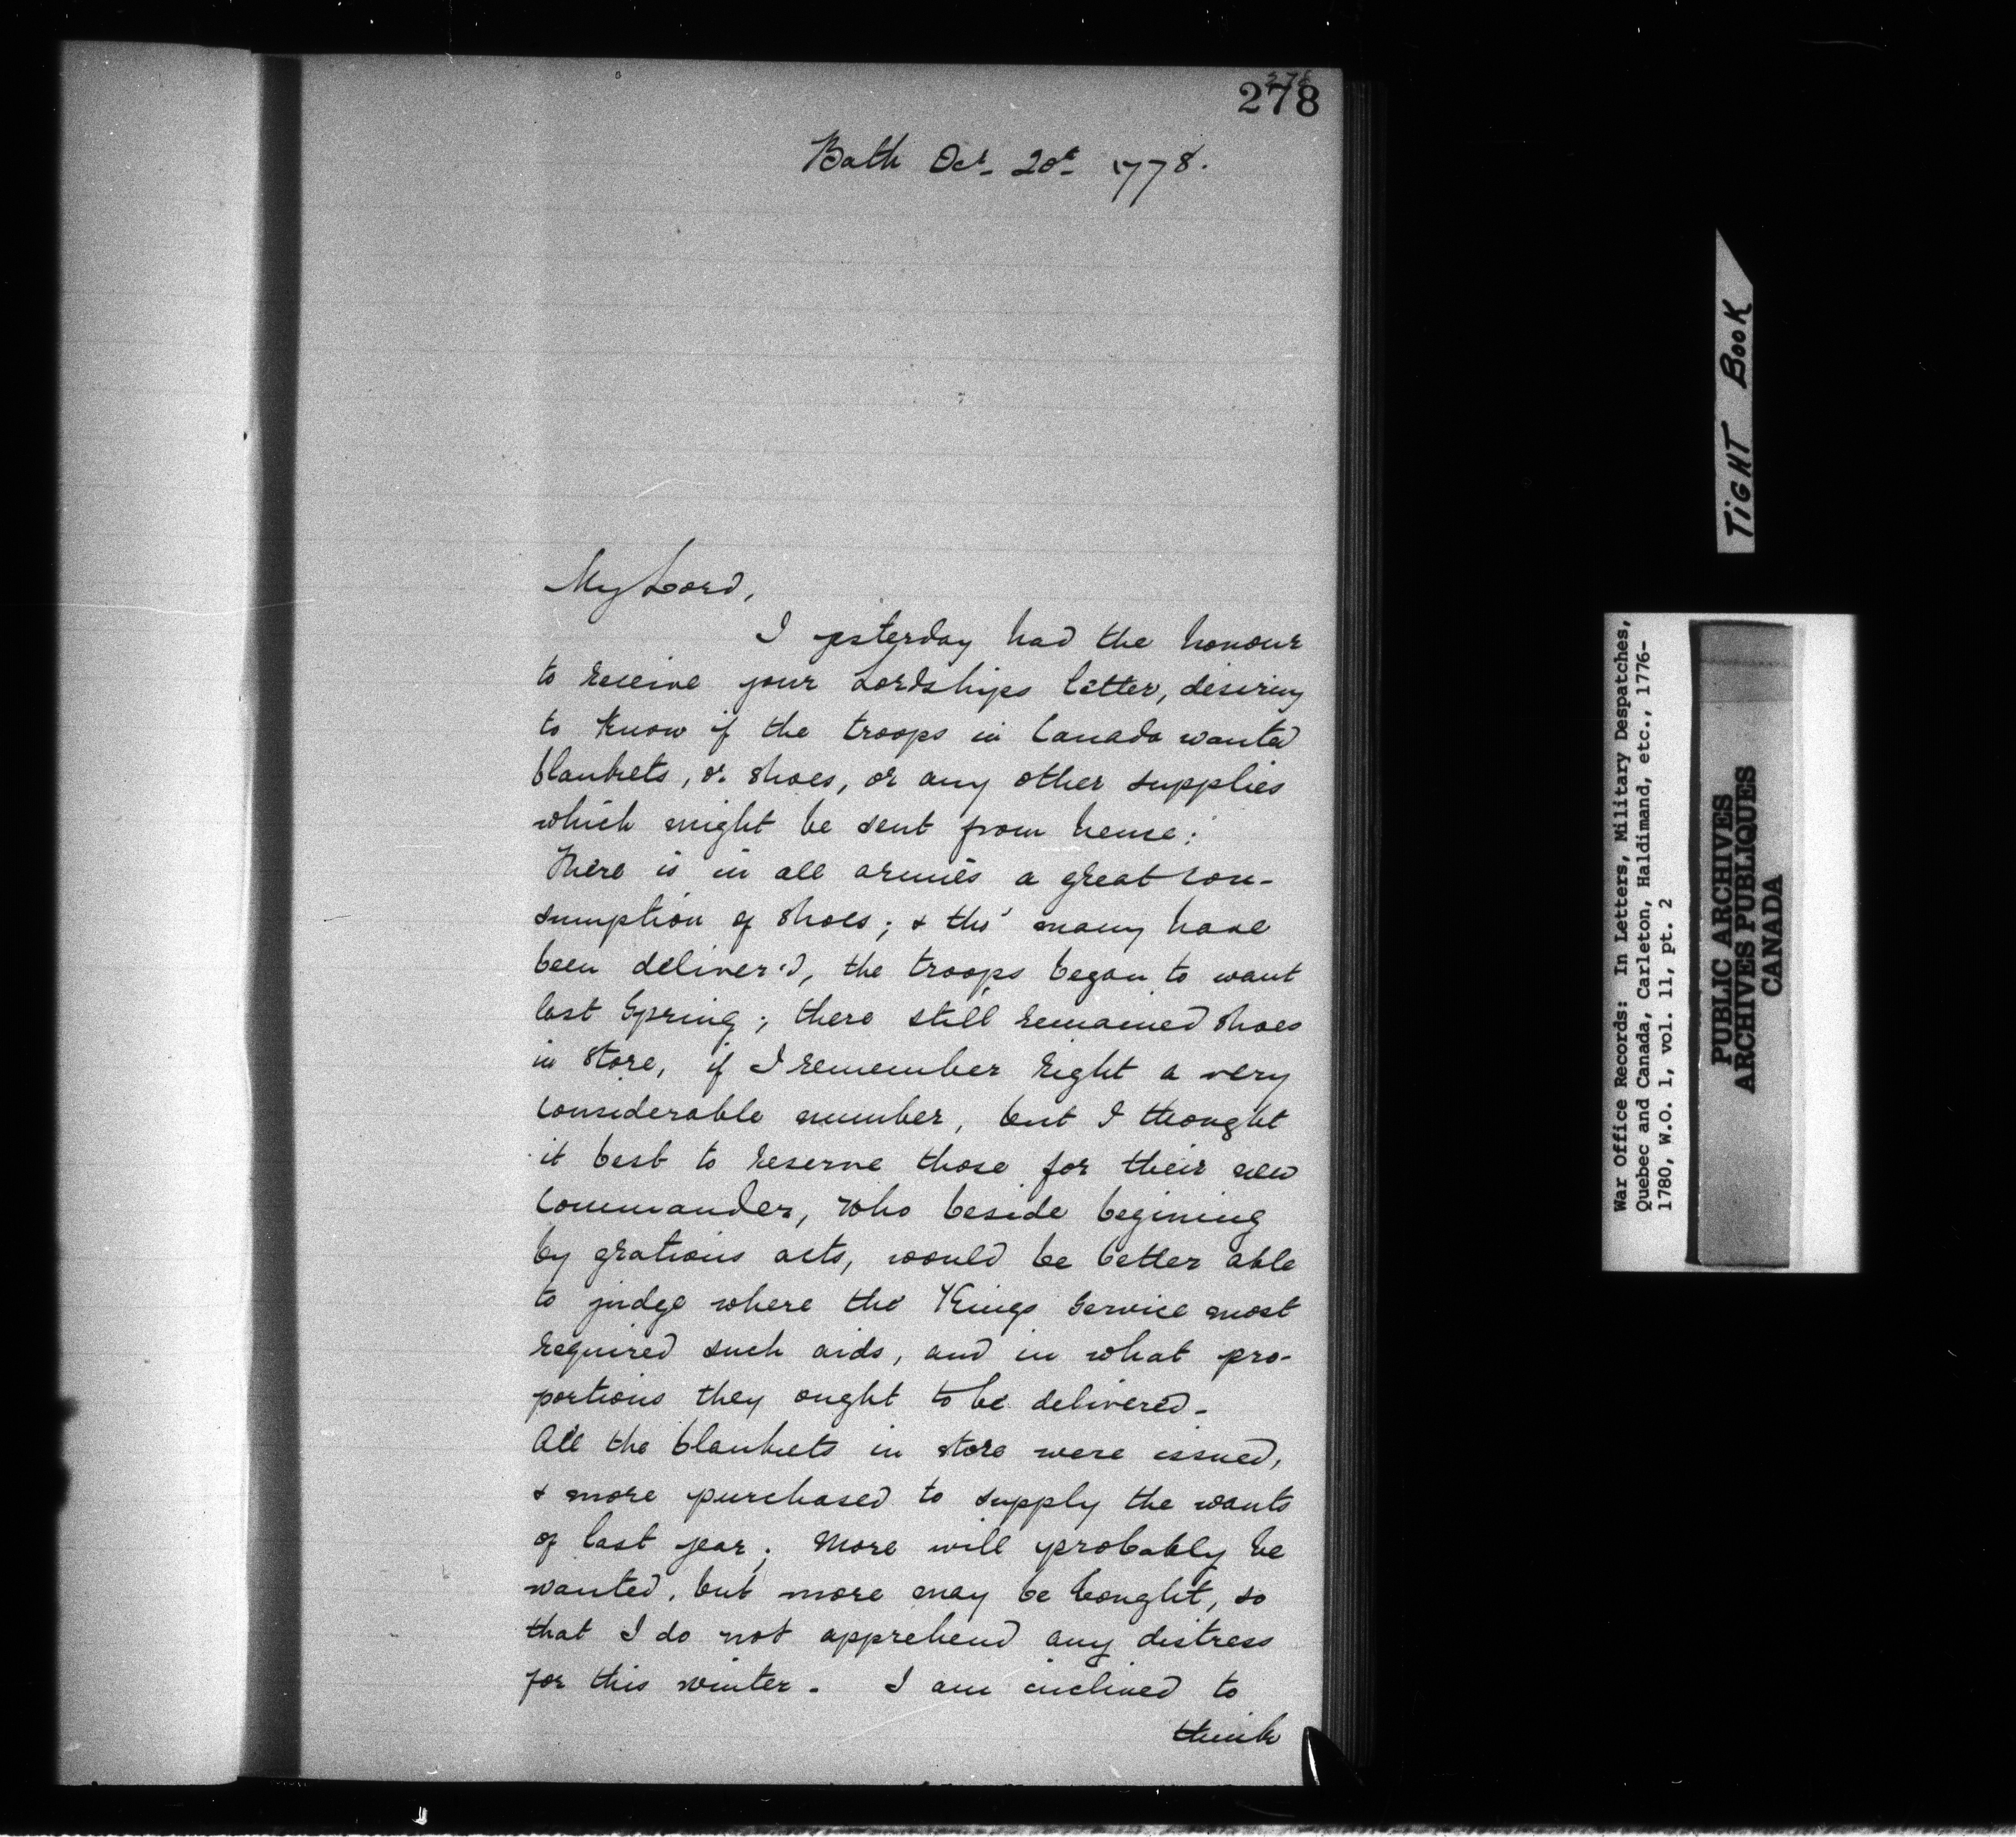 278
278
Bath Oct. 20t 1778.
My Lord,
I yesterday had the honour
to receive your Lordships letter, desiring
to know if the troops in Canada wanted
blankets, or shoes, or any other supplies
which might be sent from hence;
There is in all armies a great con-
sumption of shoes; & tho' many have
been deliver'd, the troops began to want
last Spring; there still remained shoes
in store, if I remember right a very
considerable number, but I thought
it best to reserve those for their new
Commander, who beside begining
by gratious acts, would be better able
to judge where the Kings Service most
required such aids, and in what pro-
portions they ought to be delivered-
All the blankets in store were issued,
& more purchased to supply the wants
of last year; More will probably be
wanted, but more may be bought, so
that I do not apprehend any distress
for this winter. I am inclined to
think
TIGHT BOOK
War Office Records: In Letters, Military Despatches,
Quebec and Canada, Carleton, Haldimand, etc., 1776-
1780, W.O. 1, vol. 11, pt. 2
PUBLIC ARCHIVES
ARCHIVES PUBLIQUES
CANADA